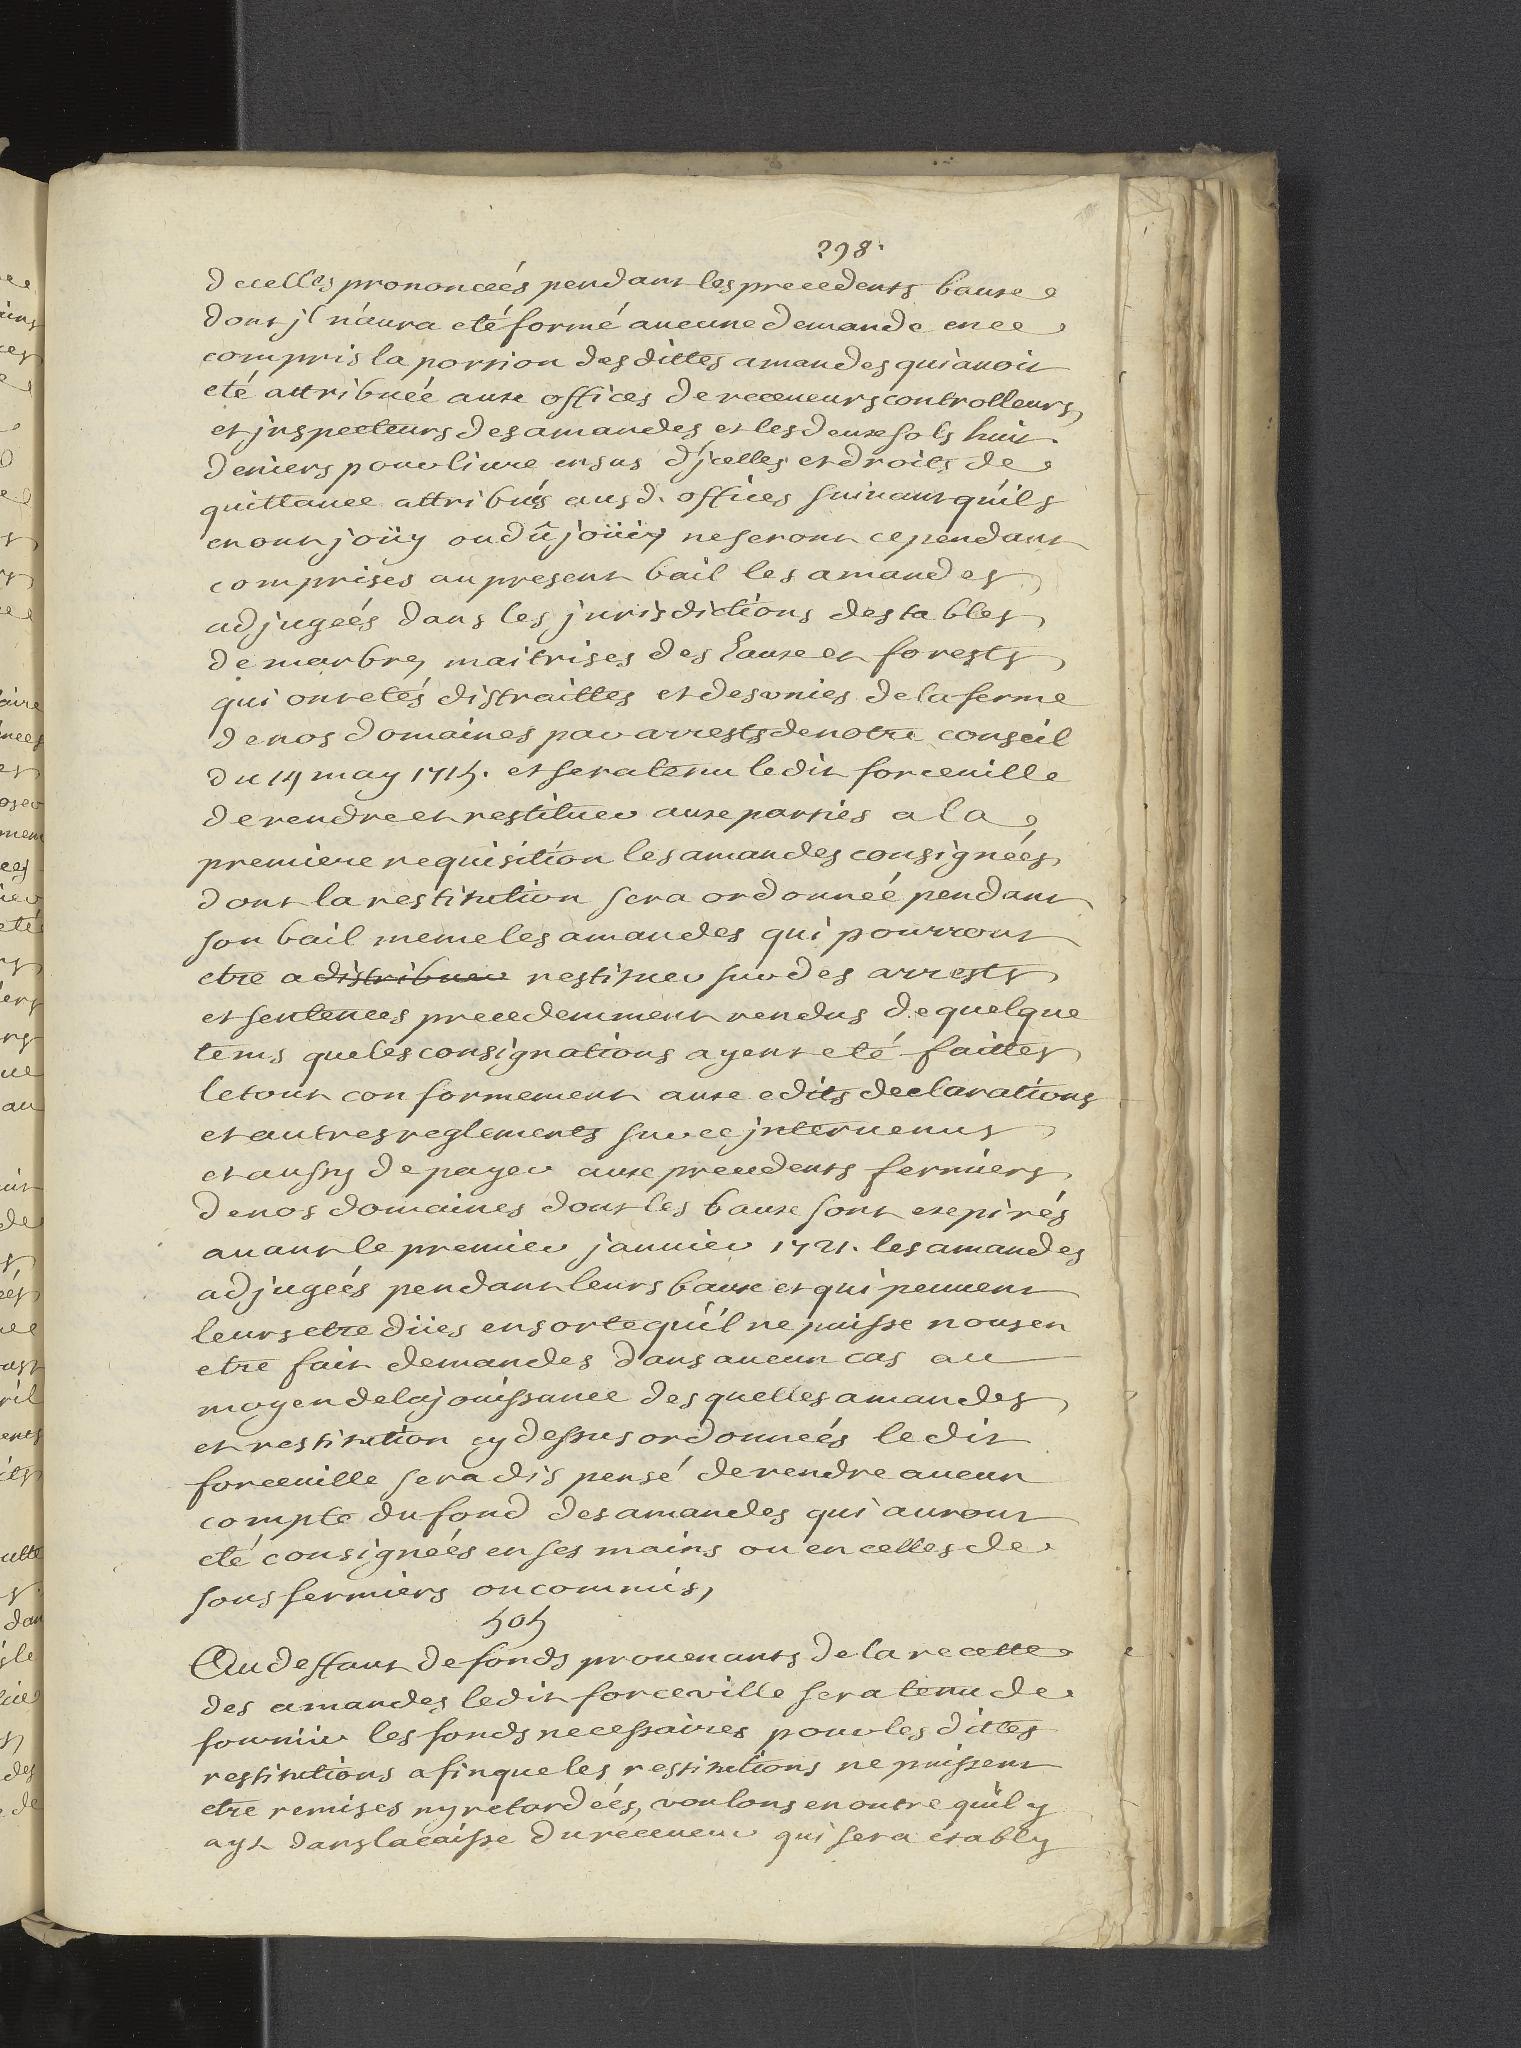 298.
de celles prononcées pendant les precedents baux
dont jl n'aura eté formé aucune demande en ce
compris la portion des dittes amandes qui avoit
eté attribuée aux offices de receveurs controlleurs,
et jnspecteurs des amandes et les deux sols huit
deniers pour livre en sus d'jcelles et droits de
quittance attribués ausd. offices suivant qu'ils
en ont joüy ou dû joüir, ne seront cependant
comprises au present bail les amandes
adjugeés dans les jurisdictions des tables
de marbre, maitrises des Eaux et forests
qui ont etés distraittes et desvnies de la ferme
de nos domaines par arrests de notre conseil
du 14 may 1715. et sera tenu ledit forceville
de rendre et restituer aux parties a la
premiere requisition les amandes consignées
dont la restitution sera ordonneé pendant
son bail meme les amandes qui pourront
etre a distribuer restituer sur des arrests
et sentences precedemment rendus de quelque
tems que les consignations ayent eté faittes
le tout conformement aux edits declarations
et autres reglements sur ce jntervenus
et aussy de payer aux precedents fermiers
de nos domaines dont les baux sont expirés
avant le premier janvier 1721. les amandes
adjugeés pendant leurs baux et qui peuvent
leurs etre dües en sorte qu'il ne puisse nous en
etre fait demandes dans aucun cas au
moyen de la jouissance des quelles amandes
et restitution cy dessus ordonneés ledit
forceville sera dispensé de rendre aucun
compte du fond des amandes qui auront
eté consigneés en ses mains ou en celles de
sous fermiers ou commis,
505
Au deffaut de fonds provenants de la recette
des amandes ledit forceville sera tenu de
fournir les fonds necessaires pour les dittes
restitutions afin que les restitutions ne puissent
etre remises ny retardeés, voulons en outre qu'il y
ayt dans la caisse du receveur qui sera etably